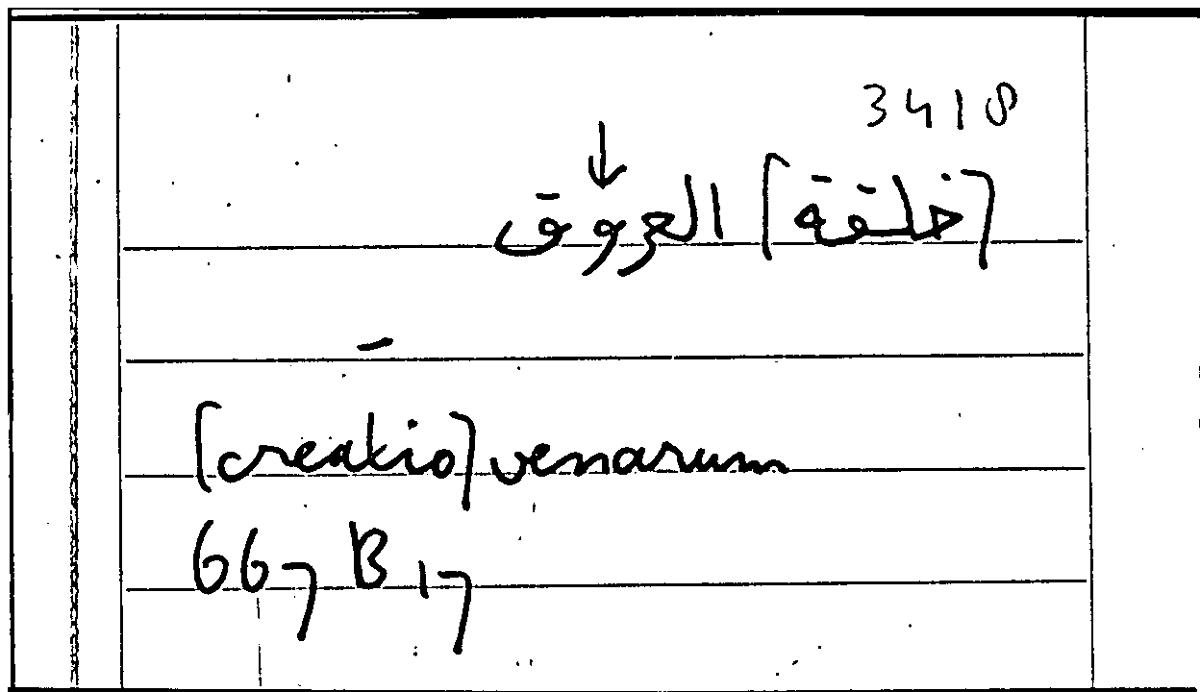 3418
↓
[خلقة] العروق
–
[creatio] venarum
667 B 17